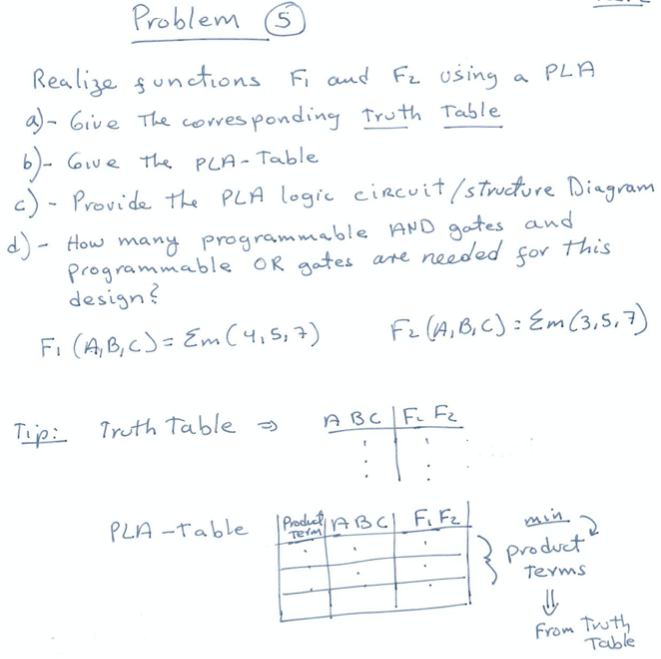 Problem 5
Realize functions F1 and F2 using a PLA
a)- Give The corresponding Truth Table
b)- Give The PLA-Table
c)- Provide the PLA logic circuit/structure Diagram
d)- How many programmable AND gates and
programmable OR gates are needed for this
design?
F1 (A,B,C)= Σm(4,5,7) F2(A,B,C)=Σm(3,5,7)
Tip: Truth Table ⇒ A B C | F1 F2
PLA-Table Product Term | A B C | F1 F2
min
product
Terms
⇓
From Truth
Table